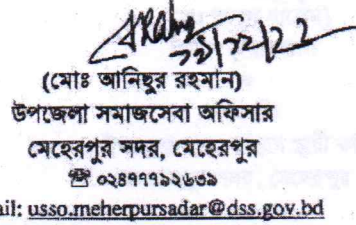 (মোঃ আনিছুর রহমান)
উপজেলা সমাজসেবা অফিসার
মেহেরপুর সদর, মেহেরপুর
☎ ০২৪৭৭৭৯২৬৩৯
ail: usso.meherpursadar@dss.gov.bd